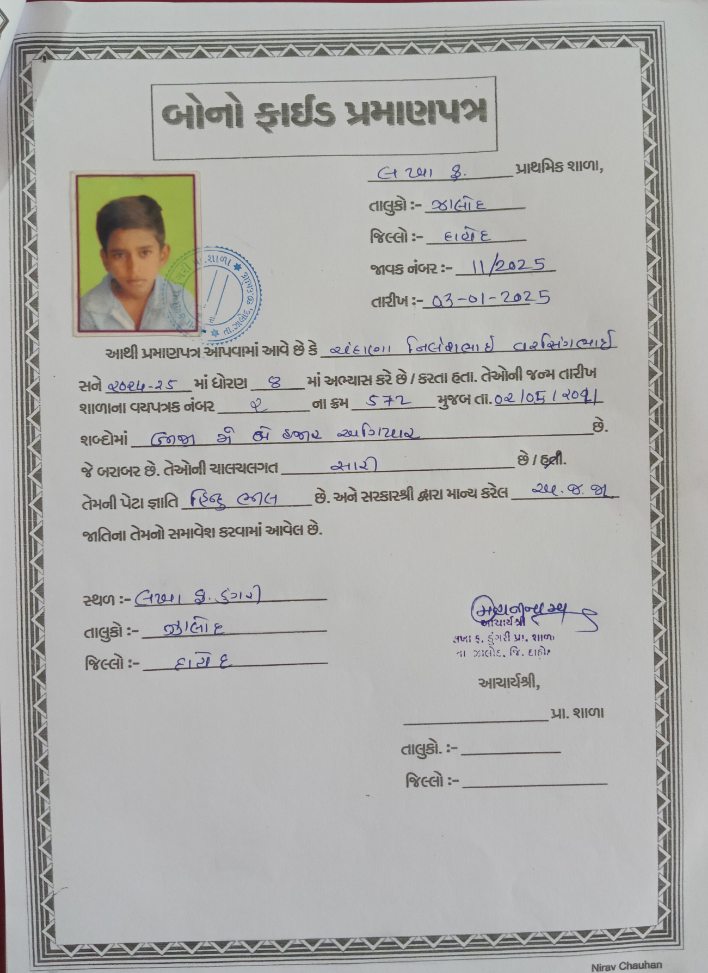 બોનો ફાઈડ પ્રમાણપત્ર
લખા ફ. પ્રાથમિક શાળા,
તાલુકો :- ઝાલોદ
જિલ્લો :- દાહોદ
જાવક નંબર :- 11/2025
તારીખ :- 03-01-2025
આથી પ્રમાણપત્ર આપવામાં આવે છે કે નિલેશભાઈ વરસિંગભાઈ
સને ૨૦૨૪-૨૫ માં ધોરણ ૪ માં અભ્યાસ કરે છે / કરતા હતા. તેઓની જન્મ તારીખ
શાળાના વયપત્રક નંબર ૨ ના ક્રમ 572 મુજબ તા. 02/05/2011
શબ્દોમાં બીજી મે બે હજાર અગિયાર છે.
જે બરાબર છે. તેઓની ચાલચલગત સારી છે / હતી.
તેમની પેટા જ્ઞાતિ હિન્દુ ભીલ છે. અને સરકારશ્રી દ્વારા માન્ય કરેલ અ.જ.જા
જાતિના તેમનો સમાવેશ કરવામાં આવેલ છે.
સ્થળ :- લખા ફ. ડુંગરી
તાલુકો :- ઝાલોદ
જિલ્લો :- દાહોદ
આચાર્યશ્રી
લખા ફ. ડુંગરી પ્રા. શાળા
તા ઝાલોદ, જિ. દાહોદ
આચાર્યશ્રી,
પ્રા. શાળા
તાલુકો. :-
જિલ્લો :-
Nirav Chauhan